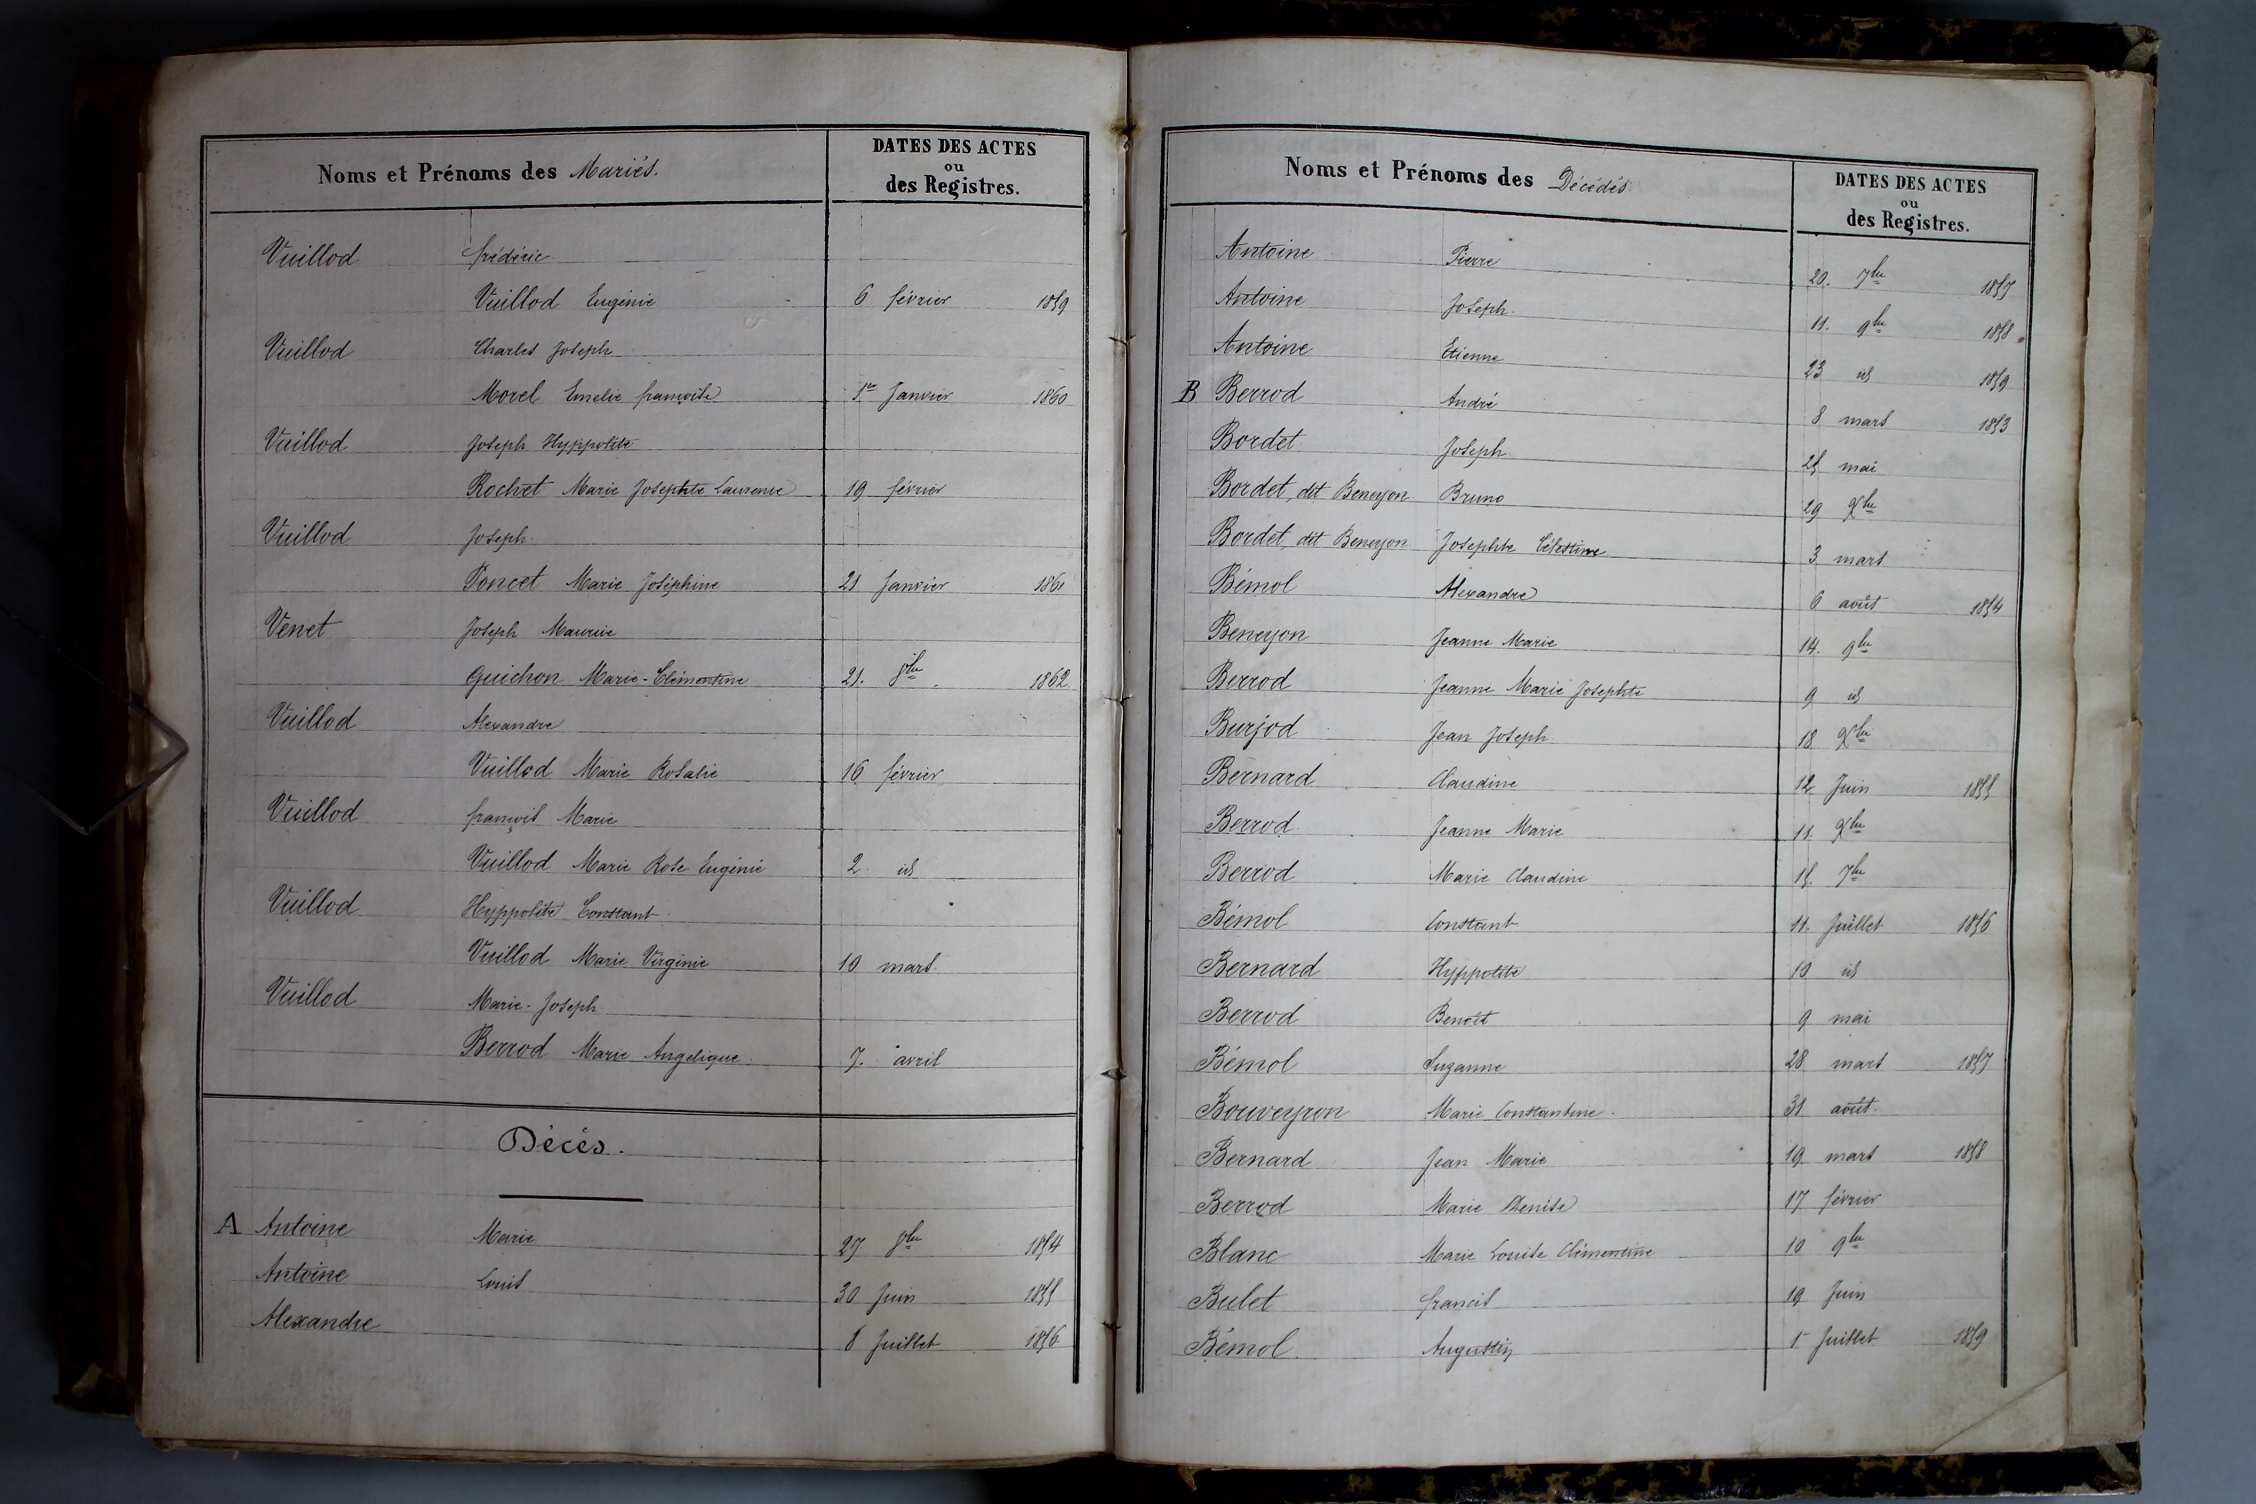 Noms et Prénoms des Mariés.
DATES DES ACTES
ou
des Registres.
Vuillod frédéric
Vuillod Eugénie 6 février 1859
Vuillod Charles Joseph
Morel Emelie françoise 1er Janvier 1860
Vuillod Joseph Hyppolite
Rochet Marie Josephte Laurence 19 février
Vuillod Joseph
Poncet Marie Joséphine 21 Janvier 1861
Venet Joseph Maurice
Guichon Marie-Clémentine 21. 8bre 1862
Vuillod Alexandre
Vuillod Marie Rosalie 16 février
Vuillod françois Marie
Vuillod Marie Rose Eugénie 2 id
Vuillod Hyppolite Constant
Vuillod Marie Virginie 10 mars.
Vuillod Marie-Joseph
Berrod Marie Angelique 7. avril
Décés.
A Antoine Marie 27 8bre 1854
Antoine Louis 30 Juin 1855
Alexandre 8 Juillet 1856
Noms et Prénoms des Décédés
DATES DES ACTES
ou
des Registres.
Antoine Pierre 20. 7bre 1857
Antoine Joseph. 11. 9bre 1858
Antoine Etienne 23 id 1859
B Berrod André 8 mars 1853
Bordet Joseph 25 mai
Bordet, dit Beneyon Bruno 29 Xbre
Bordet, dit Beneyon Josephte Célestine 3 mars
Bémol Alexandre 6 août 1854
Beneyon Jeanne Marie 14. 9bre
Berrod Jeanne Marie Josephte 9 id
Burjod Jean Joseph 18 Xbre
Bernard Claudine 12. Juin 1855
Berrod Jeanne Marie 11. Xbre
Berrod Marie Claudine 15. 7bre
Bémol Constant 11. Juillet 1856
Bernard Hyppolite 10 id
Berrod Benoît 9 mai
Bémol Suzanne 28 mars 1857
Bouveyron Marie Constantine 31 août.
Bernard Jean Marie 19 mars 1858
Berrod Marie Denise 17 février
Blanc Marie Louise Clémentine 10 9bre
Bulet francis 19 Juin
Bémol Augustin 1er Juillet 1859